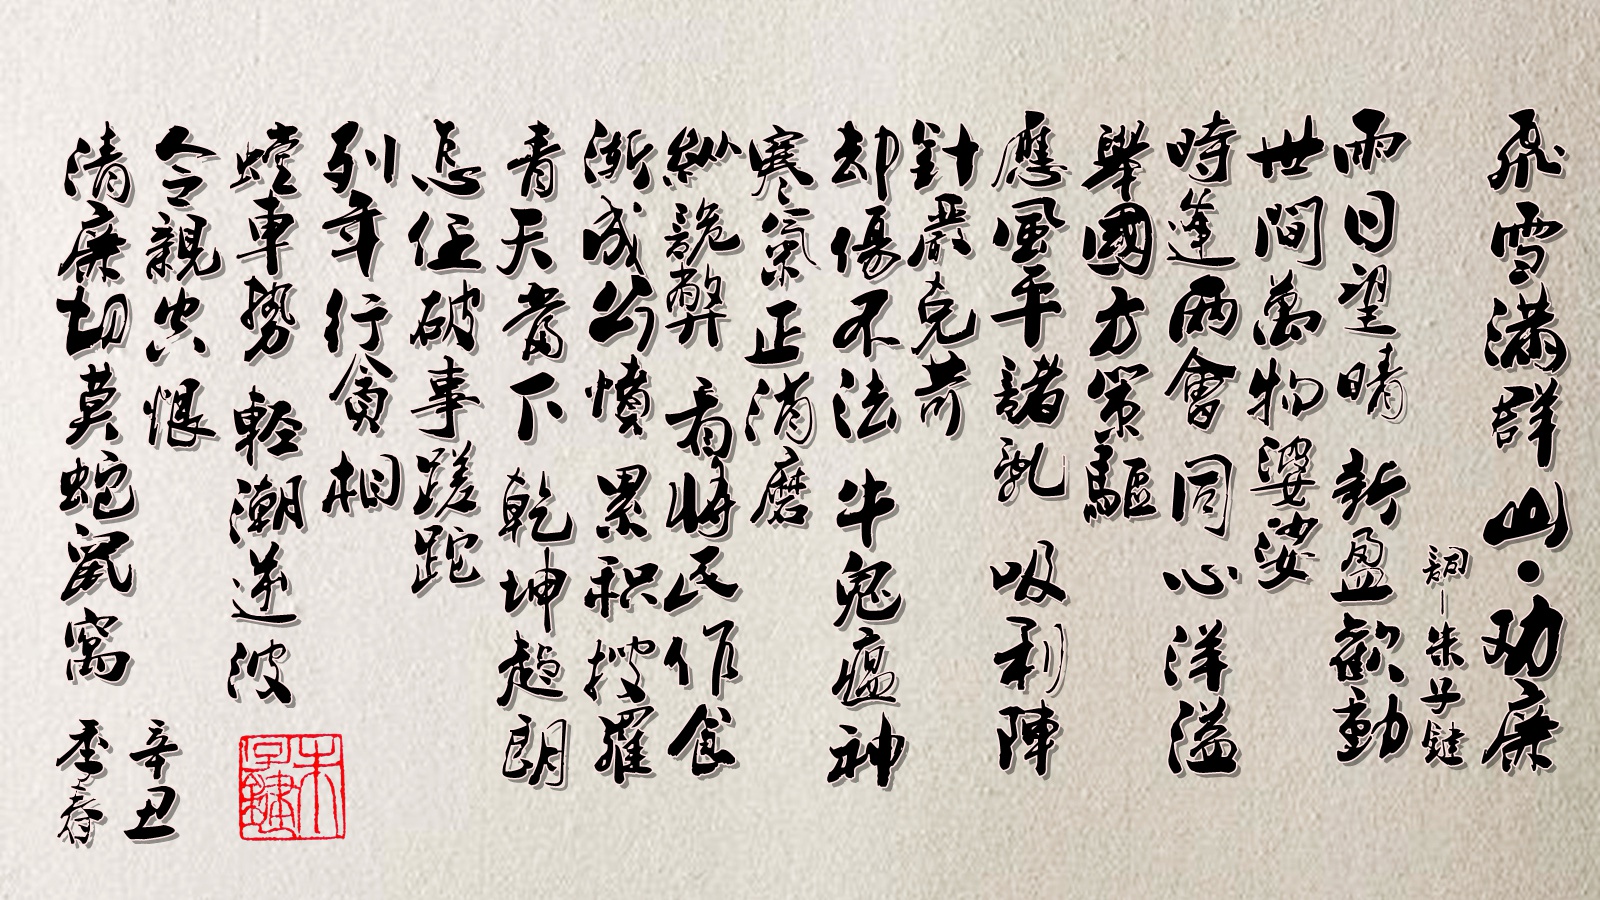 飛雪滿群山·劝廉
詞—朱子鍵
雨日望晴 新盈歡動
世間萬物婆娑
時逢兩會 同心洋溢
舉國方策驅
應風平諸乱 吸利陣
針嚴克苛
却傷不法 牛鬼瘟神
寒氣正消磨
縱詭弊 看將民作食
漸成公憤 累积搜羅
青天當下 乾坤趟朗
怎任破事蹉跎
列年行貪相
螳車勢 輕潮逆波
令親共恨
清廉切莫蛇鼠窩
辛丑
季春
朱子鍵